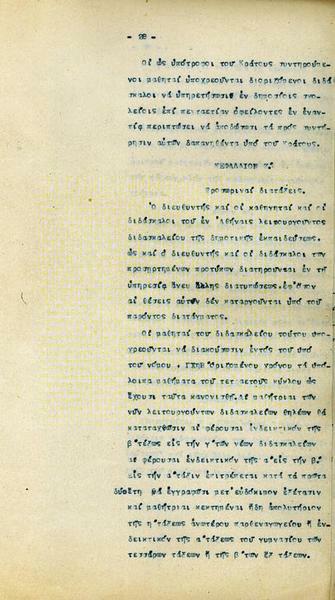 - 28 -
Οἱ ὡς ὑπότροφοι τοῦ Κράτους συντηρούμε-
νοι μαθηταί ὑποχρεοῦνται διοριζόμενοι διδά
σκαλοι νά ὑπηρετήσωσι ἐν δημοσίοις σχο-
λείοις ἐπί πενταετίαν ὀφείλοντες ἐν ἐναν-
τίᾳ περιπτώσει νά ἀποδώσωσι τά πρός συντή-
ρησιν αὐτῶν δαπανηθέντα ὑπό τοῦ Κράτους.
ΚΕΦΑΛΑΙΟΝ
Προσωριναί διατάξεις.
Ὁ διευθυντής καί οἱ καθηγηταί καί οἱ
διδάσκαλοι τοῦ ἐν Ἀθήναις λειτουργοῦντος
διδασκαλείου τῆς δημοτικῆς ἐκπαιδεύσεως
ὡς καί ὁ διευθυντής καί οἱ διδάσκαλοι τῶν
προσηρτημένων προτύπων διατηροῦνται ἐν τῇ
ὑπηρεσίᾳ ἄνευ ἄλλης διατυπώσεως ἐφ'ὅσον
αἱ θέσεις αὐτῶν δέν καταργοῦνται ὑπό τοῦ
παρόντος διατάγματος.
Οἱ μαθηταί τοῦ διδασκαλείου τούτου υπο-
χρεοῦνται νά διακούσωσιν ἐντός τοῦ ὑπό
τοῦ νόμου ὁριζομένου χρόνου τά ὑπό-
λοιπα μαθήματα τοῦ τετραετοῦς κύκλου ὡς
ἔχουσι ταῦτα κανονισθῇ. Αἱ μαθήτριαι τῶν
νῦν λειτουργούντων διδασκαλείων θηλέων θά
καταταχθῶσιν αἱ φέρουσαι ἐνδεικτικόν τῆς
β'τάξεως εἰς τήν γ'τῶν νέων διδασκαλείων
αἱ φέρουσαι ἐνδεικτικόν τῆς α'εἰς τήν β.
εἰς τήν α'τάξιν ἐπιτρέπεται κατά τά πρῶτα
δύο ἔτη θά ἐγγραφῶσι μετ'εὐδόκιμον ἐξέτασιν
καί μαθήτριαι κεκτημέναι ἤδη ἀπολυτήριον
τῆς η'τάξεως ἀνωτέρου παρθεναγωγείου ἤ ἐν-
δεικτικόν τῆς α'τάξεως τοῦ γυμνασίου τῶν
τεσσάρων τάξεων ἤ τῆς β'τῶν ἕξ τάξεων.